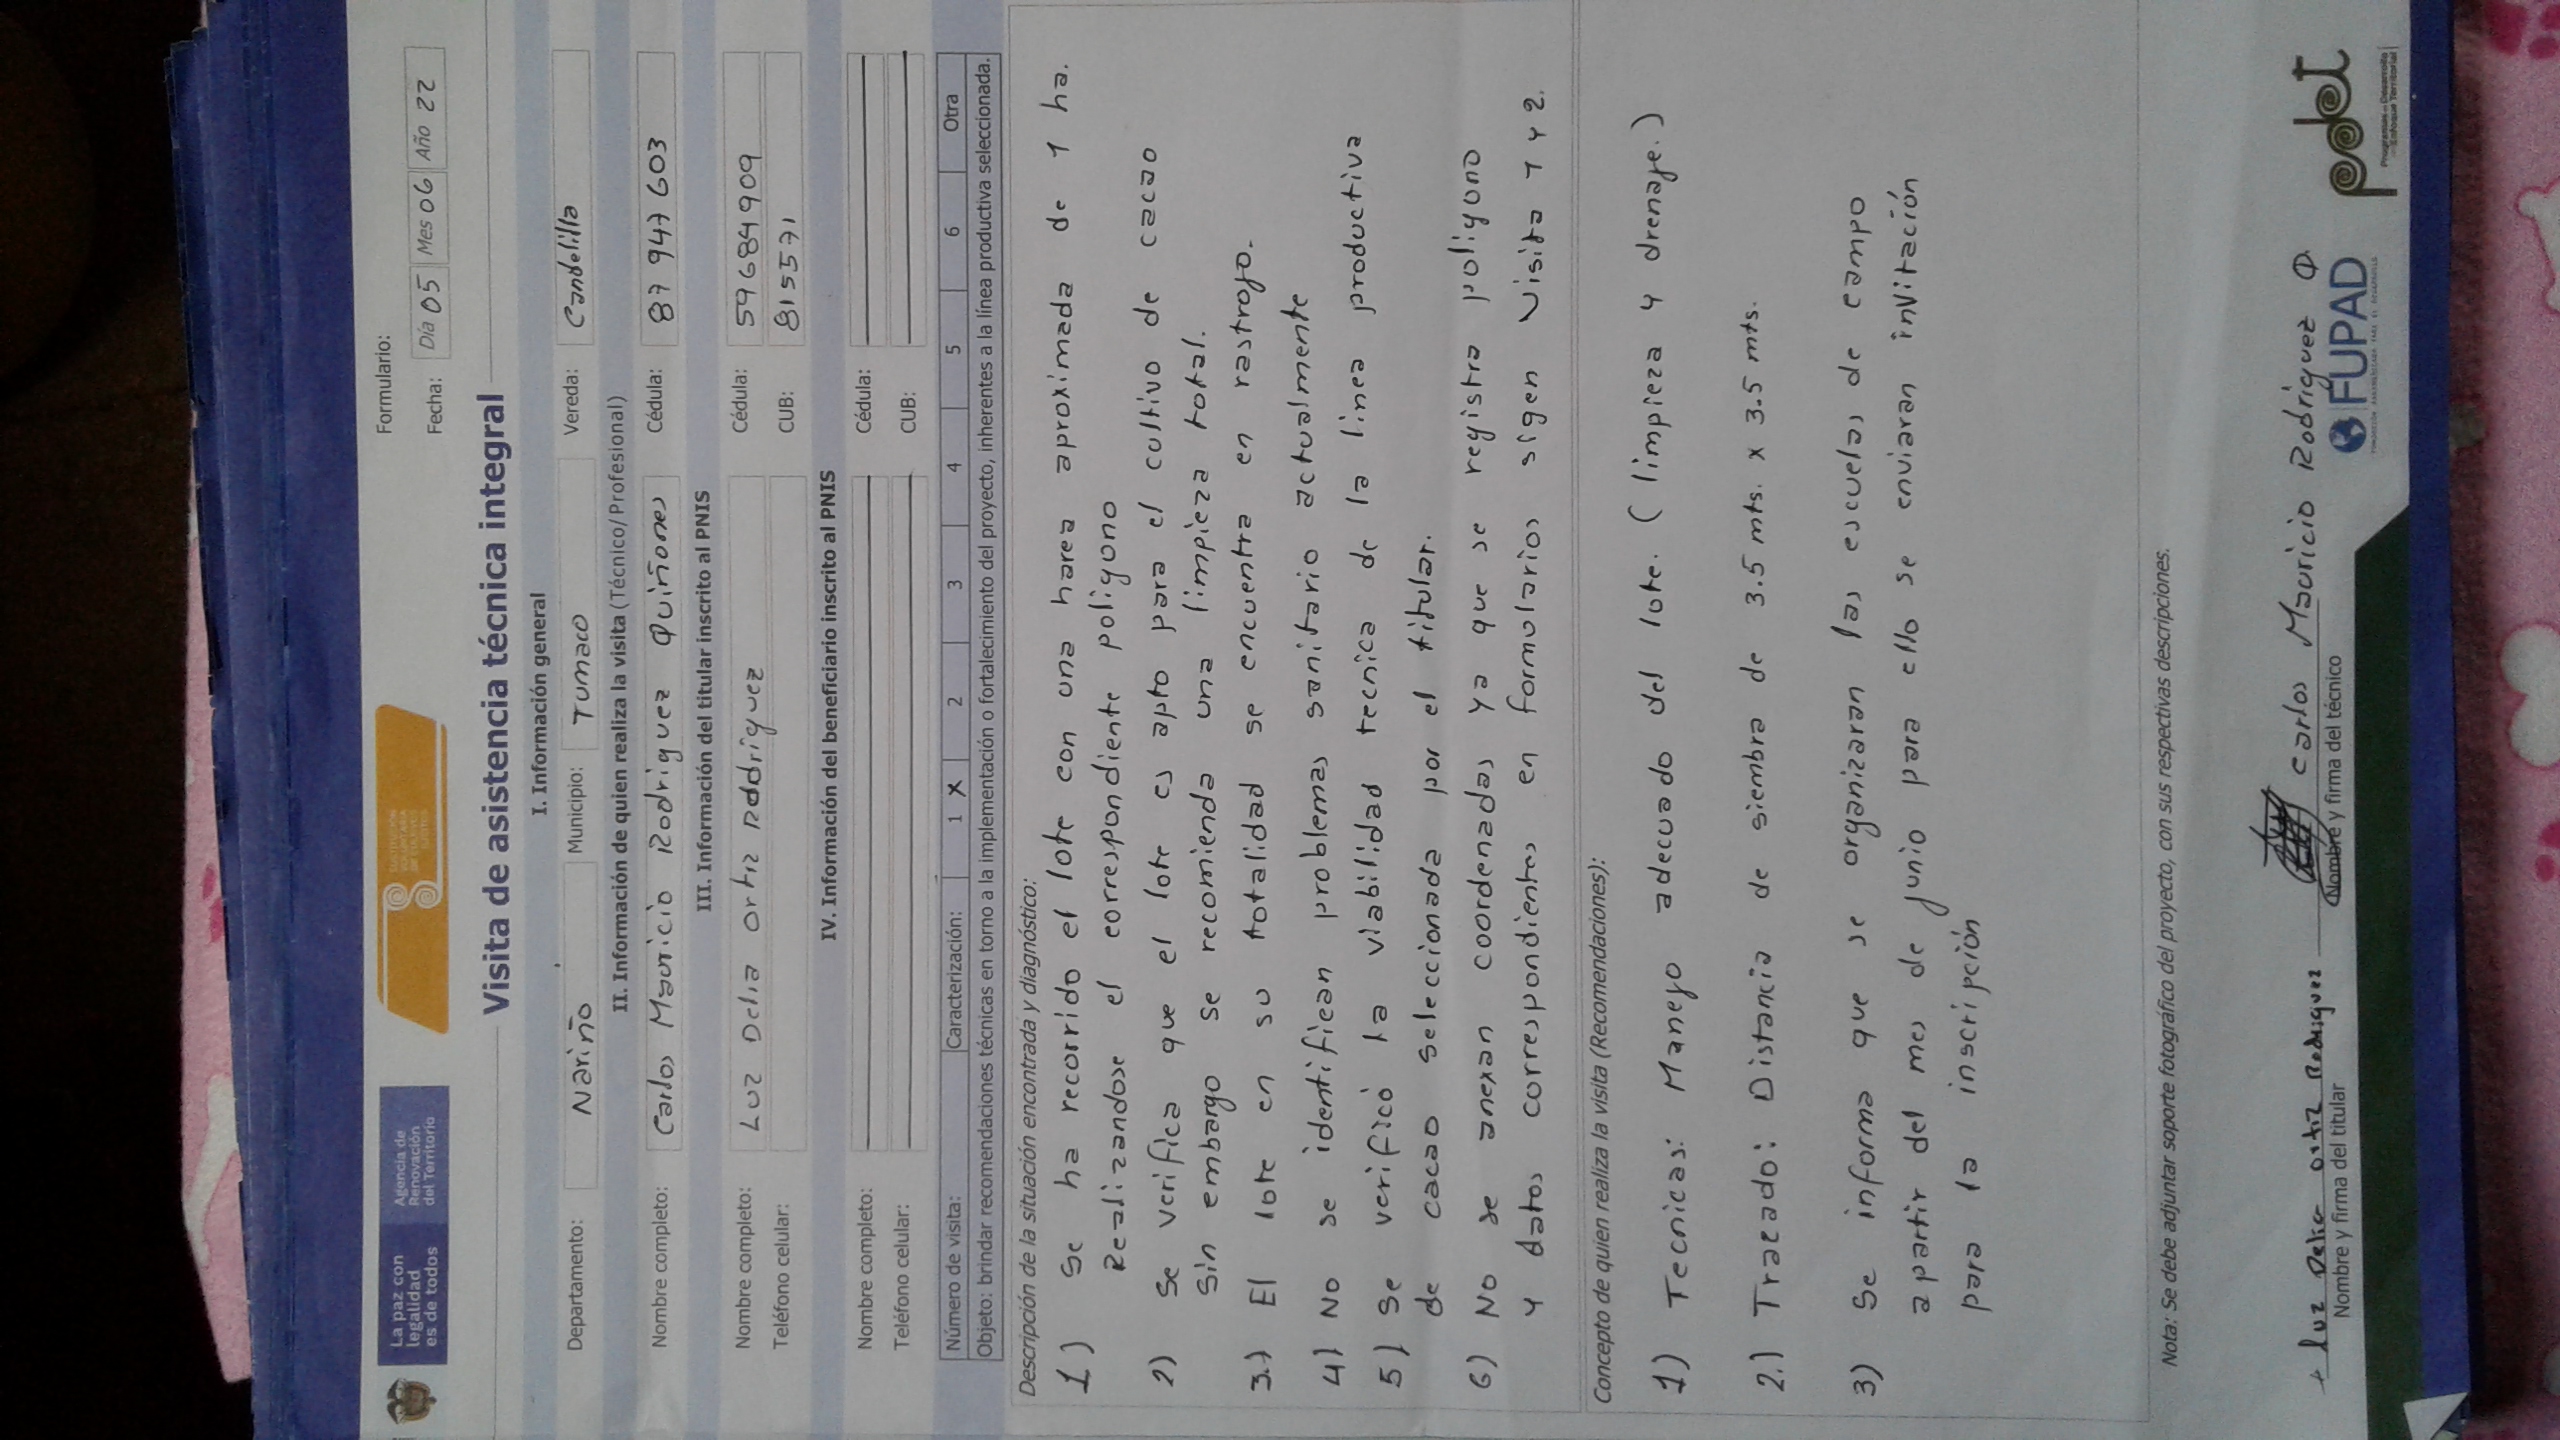 La paz con
legalidad
es de todos
Agencia de
Renovación
del Territorio
SUSTITUCIÓN
VOLUNTARIA
DE CULTIVOS
ILÍCITOS
Formulario:
Fecha: Día 05 Mes 06 Año 22
Visita de asistencia técnica integral
I. Información general
Departamento: Nariño Municipio: Tumaco Vereda: Candelilla
II. Información de quien realiza la visita (Técnico/Profesional)
Nombre completo: Carlos Mauricio Rodriguez Quiñones Cédula: 87 947 603
III. Información del titular inscrito al PNIS
Nombre completo: Luz Delia Ortiz Rodriguez Cédula: 59684909
Teléfono celular: CUB: 815571
IV. Información del beneficiario inscrito al PNIS
Nombre completo: Cédula:
Teléfono celular: CUB:
Número de visita: Caracterización: 1 X 2 3 4 5 6 Otra
Objeto: brindar recomendaciones técnicas en torno a la implementación o fortalecimiento del proyecto, inherentes a la línea productiva seleccionada.
Descripción de la situación encontrada y diagnóstico:
1) Se ha recorrido el lote con una harea aproximada de 1 ha.
Realizandose el correspondiente poligono
2) Se verifica que el lote es apto para el cultivo de cacao
Sin embargo se recomienda una limpieza total.
3.) El lote en su totalidad se encuentra en rastrojo.
4) No se identifican problemas sanitario actualmente
5) Se verificó la viabilidad tecnica de la linea productiva
de cacao seleccionada por el titular.
6) No se anexan coordenadas ya que se registra poligono
y datos correspondientes en formularios sigen Visita 1 y 2.
Concepto de quien realiza la visita (Recomendaciones):
1) Tecnicas: Manejo adecuado del lote. (limpieza y drenaje.)
2.) Traeado: Distancia de siembra de 3.5 mts. x 3.5 mts.
3) Se informa que se organizaran las escuelas de campo
a partir del mes de junio para ello se enviaran invitación
para la inscripción
Nota: Se debe adjuntar soporte fotográfico del proyecto, con sus respectivas descripciones.
+ luz Delia ortiz Rodriguez
Nombre y firma del titular
Carlos Mauricio Rodriguez Q
Nombre y firma del técnico
FUPAD
pdet
Programas de Desarrollo
con Enfoque Territorial